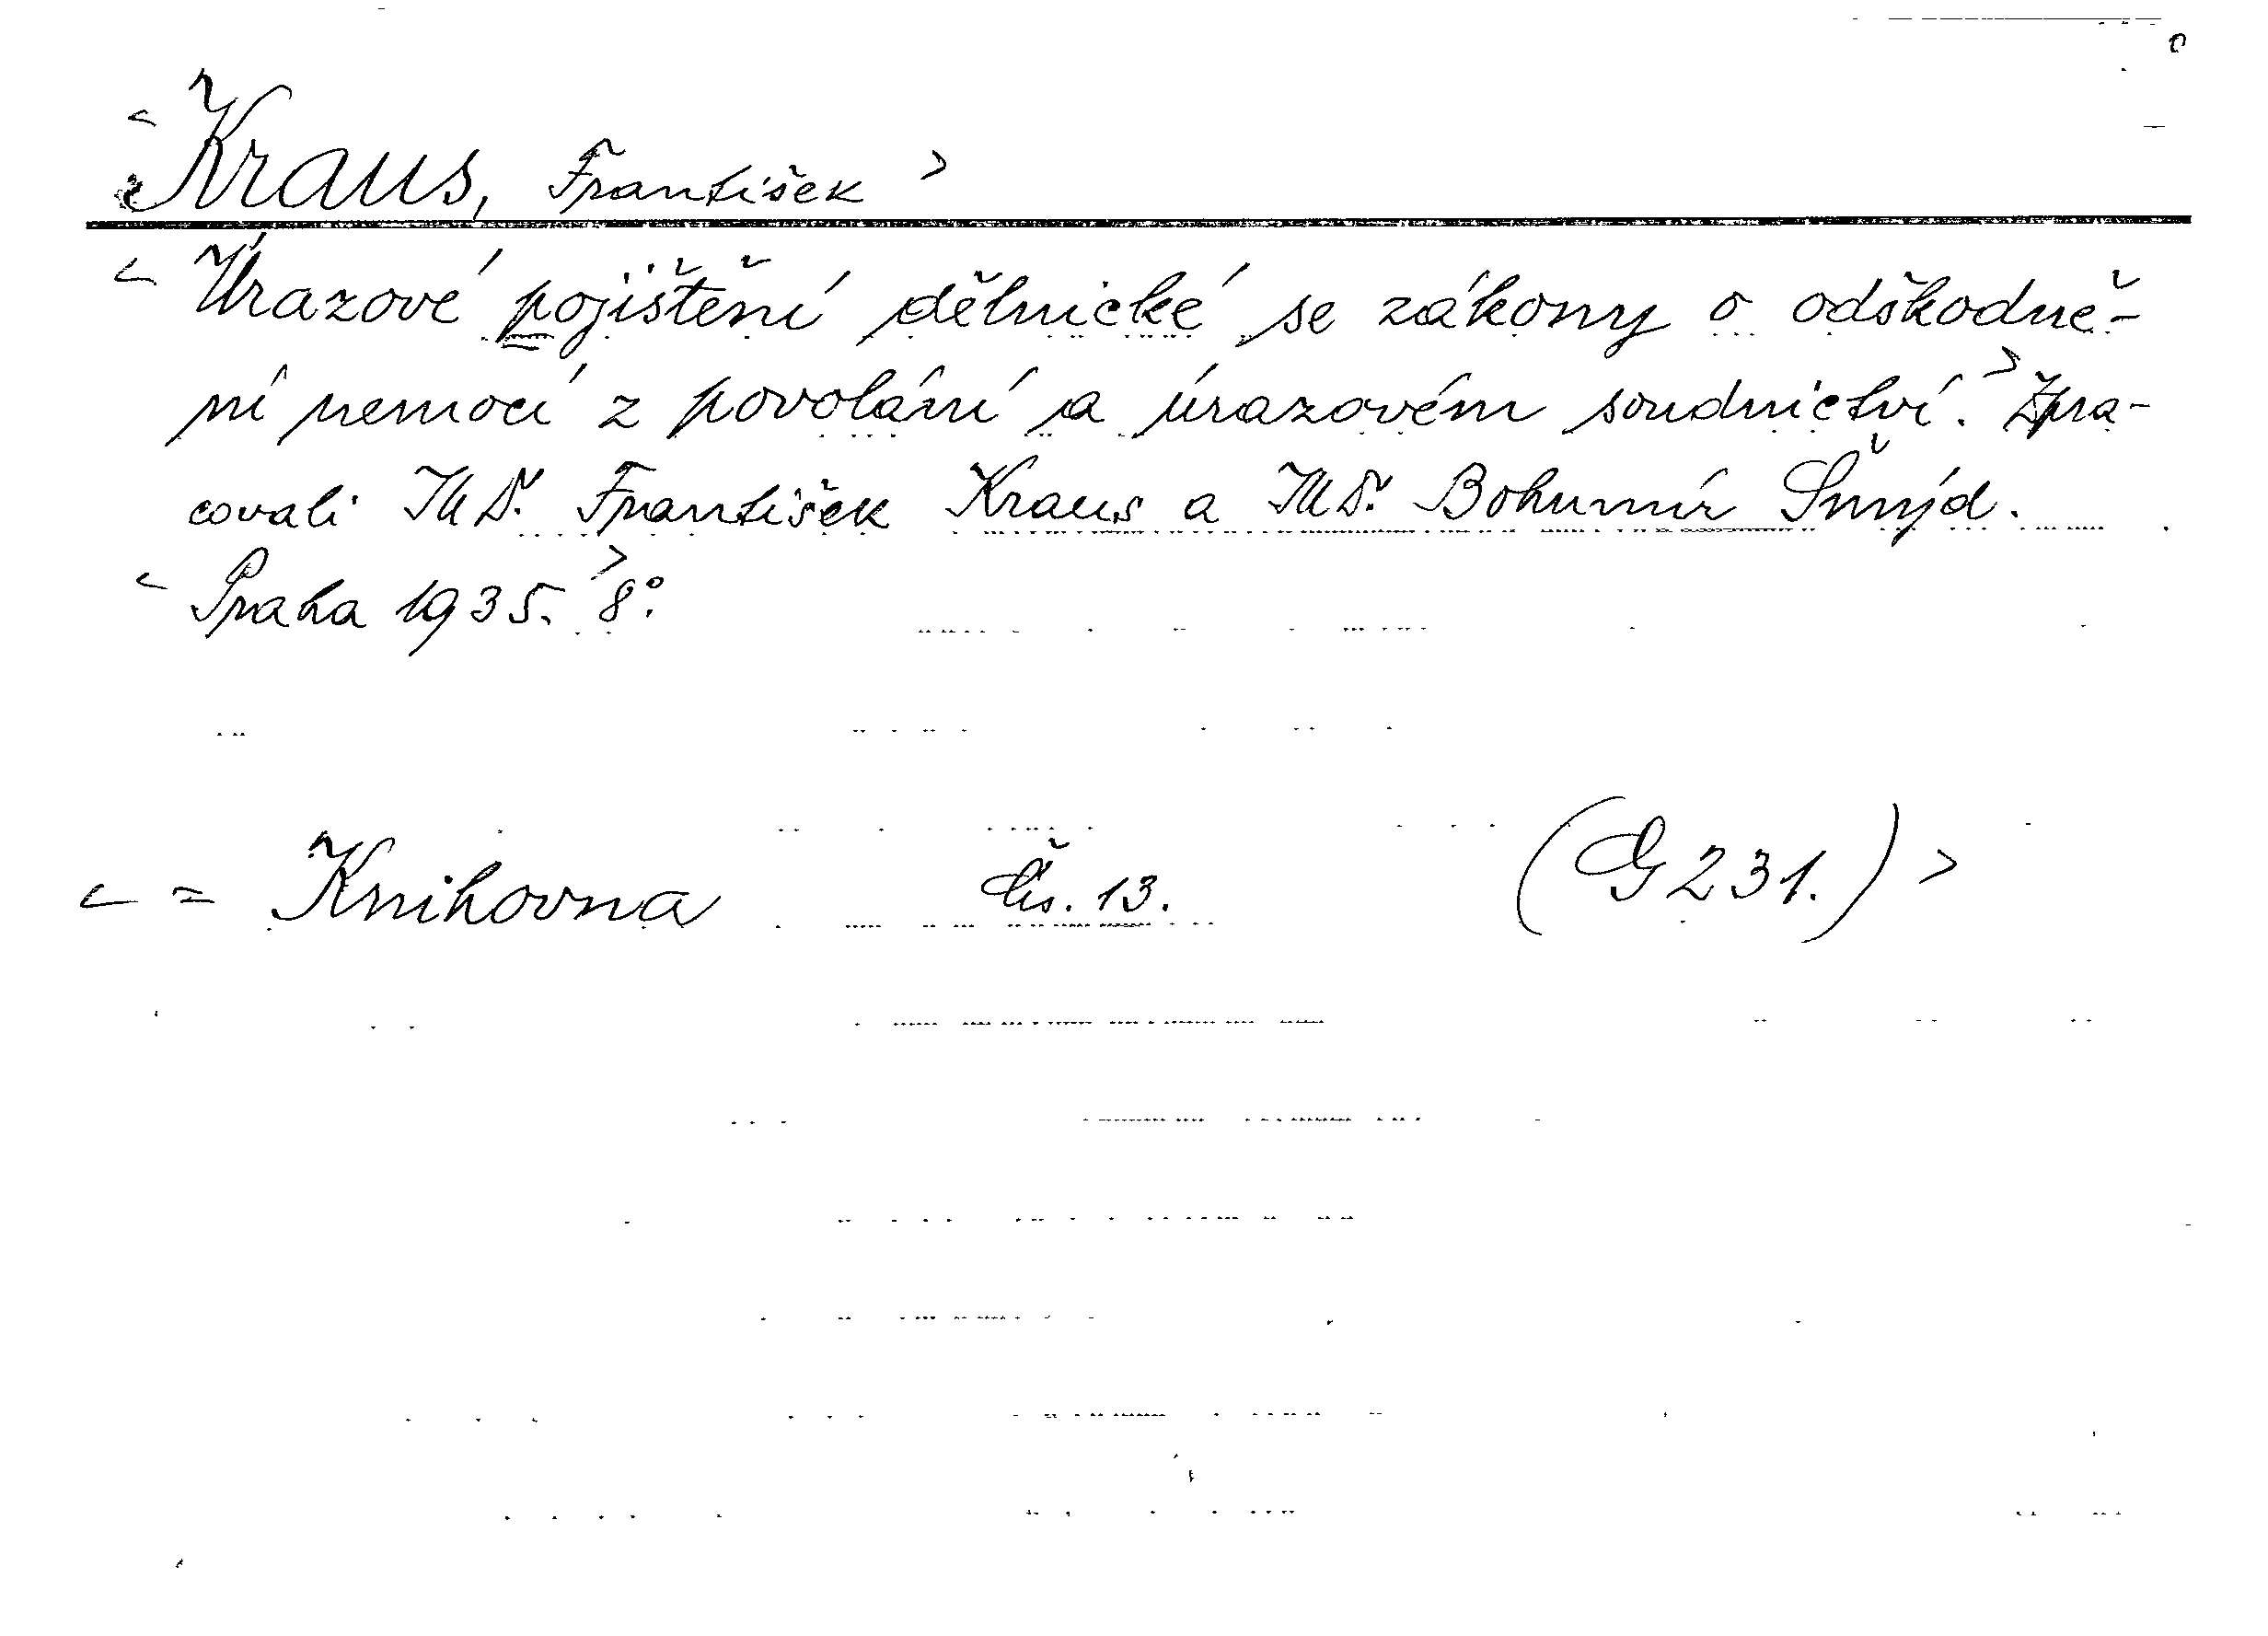 Kraus, František
Úrazové pojištění dělnické se zákony o odškodně-
ní nemocí z povolání a úrazovém soudnictví. Zpra-
covali JUDr. František Kraus a JUDr. Bohumír Šmýd.
Praha 1935. 8°.
= Knihovna Čís. 13. (G 231.)